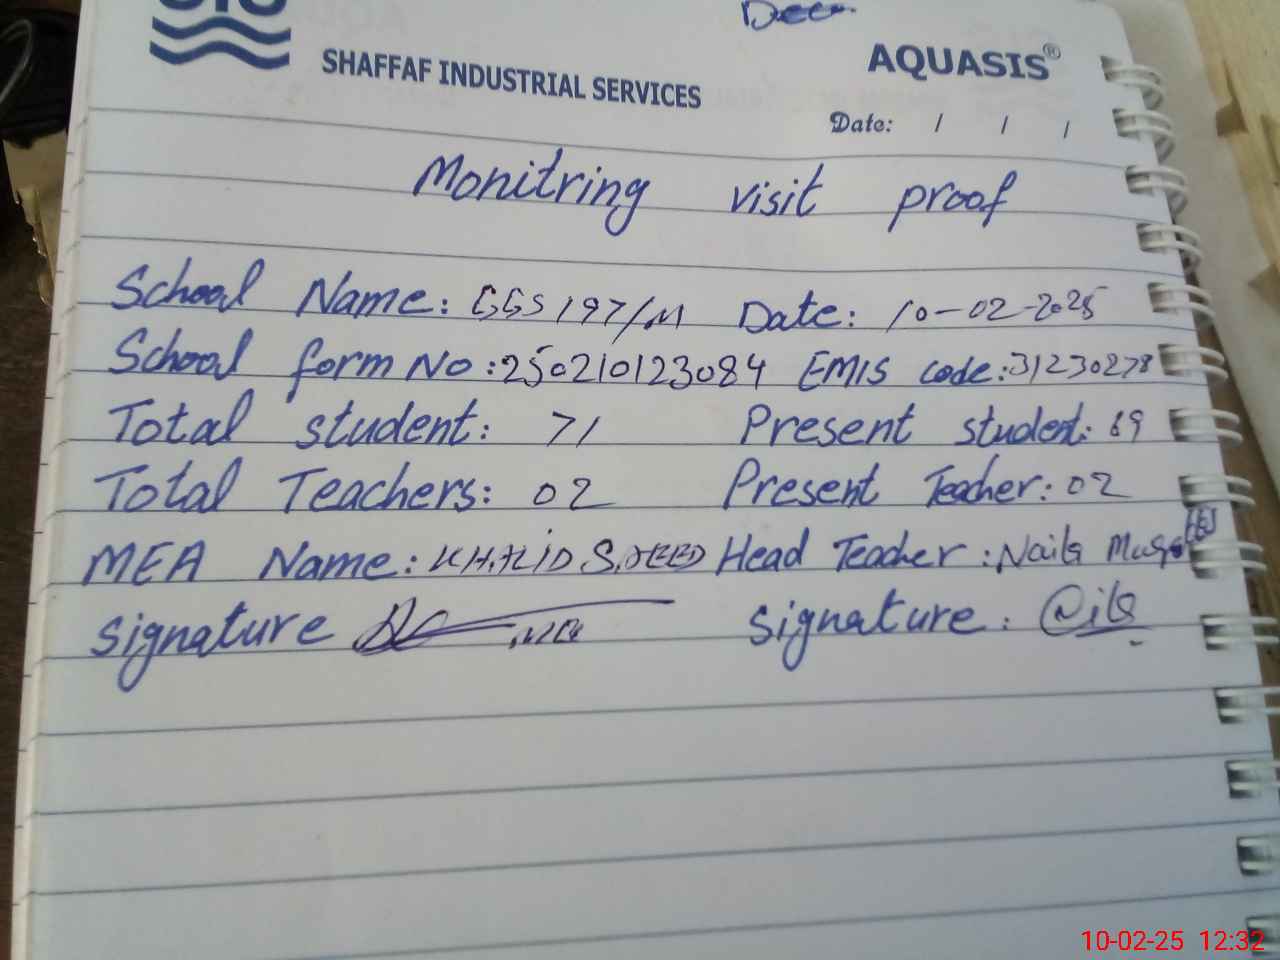 Deen
SHAFFAF INDUSTRIAL SERVICES
AQUASIS®
Date: / / /
Monitring visit proof
School Name: GGS 197/M Date: 10-02-2025
School form No: 250210123084 EMIS code: 31230278
Total student: 71 Present student: 69
Total Teachers: 02 Present Teacher: 02
MEA Name: KHALID SAEED Head Teacher: Naila
signature signature:
10-02-25 12:32